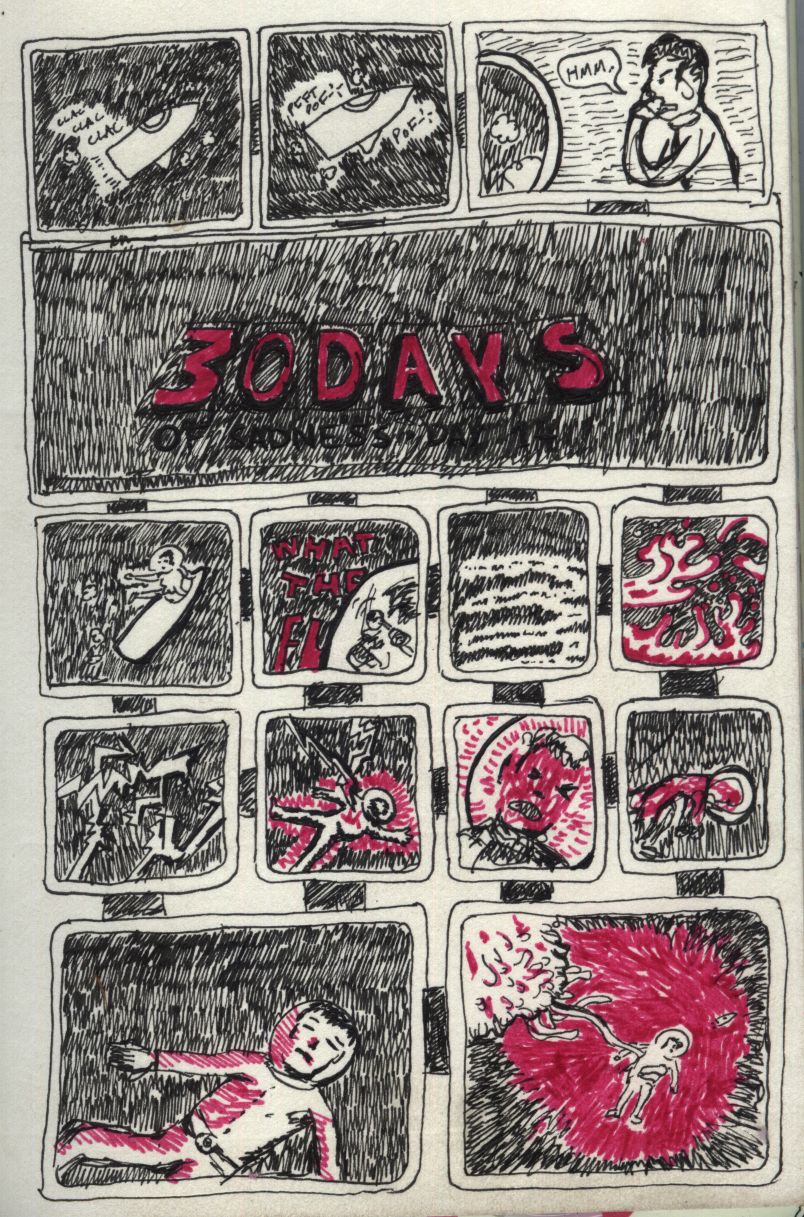 CLAC
CLAC
CLAC
PFFT
POF!
POF!
HMM.
30 DAYS
OF SADNESS - DAY 14
WHAT
THE
FU